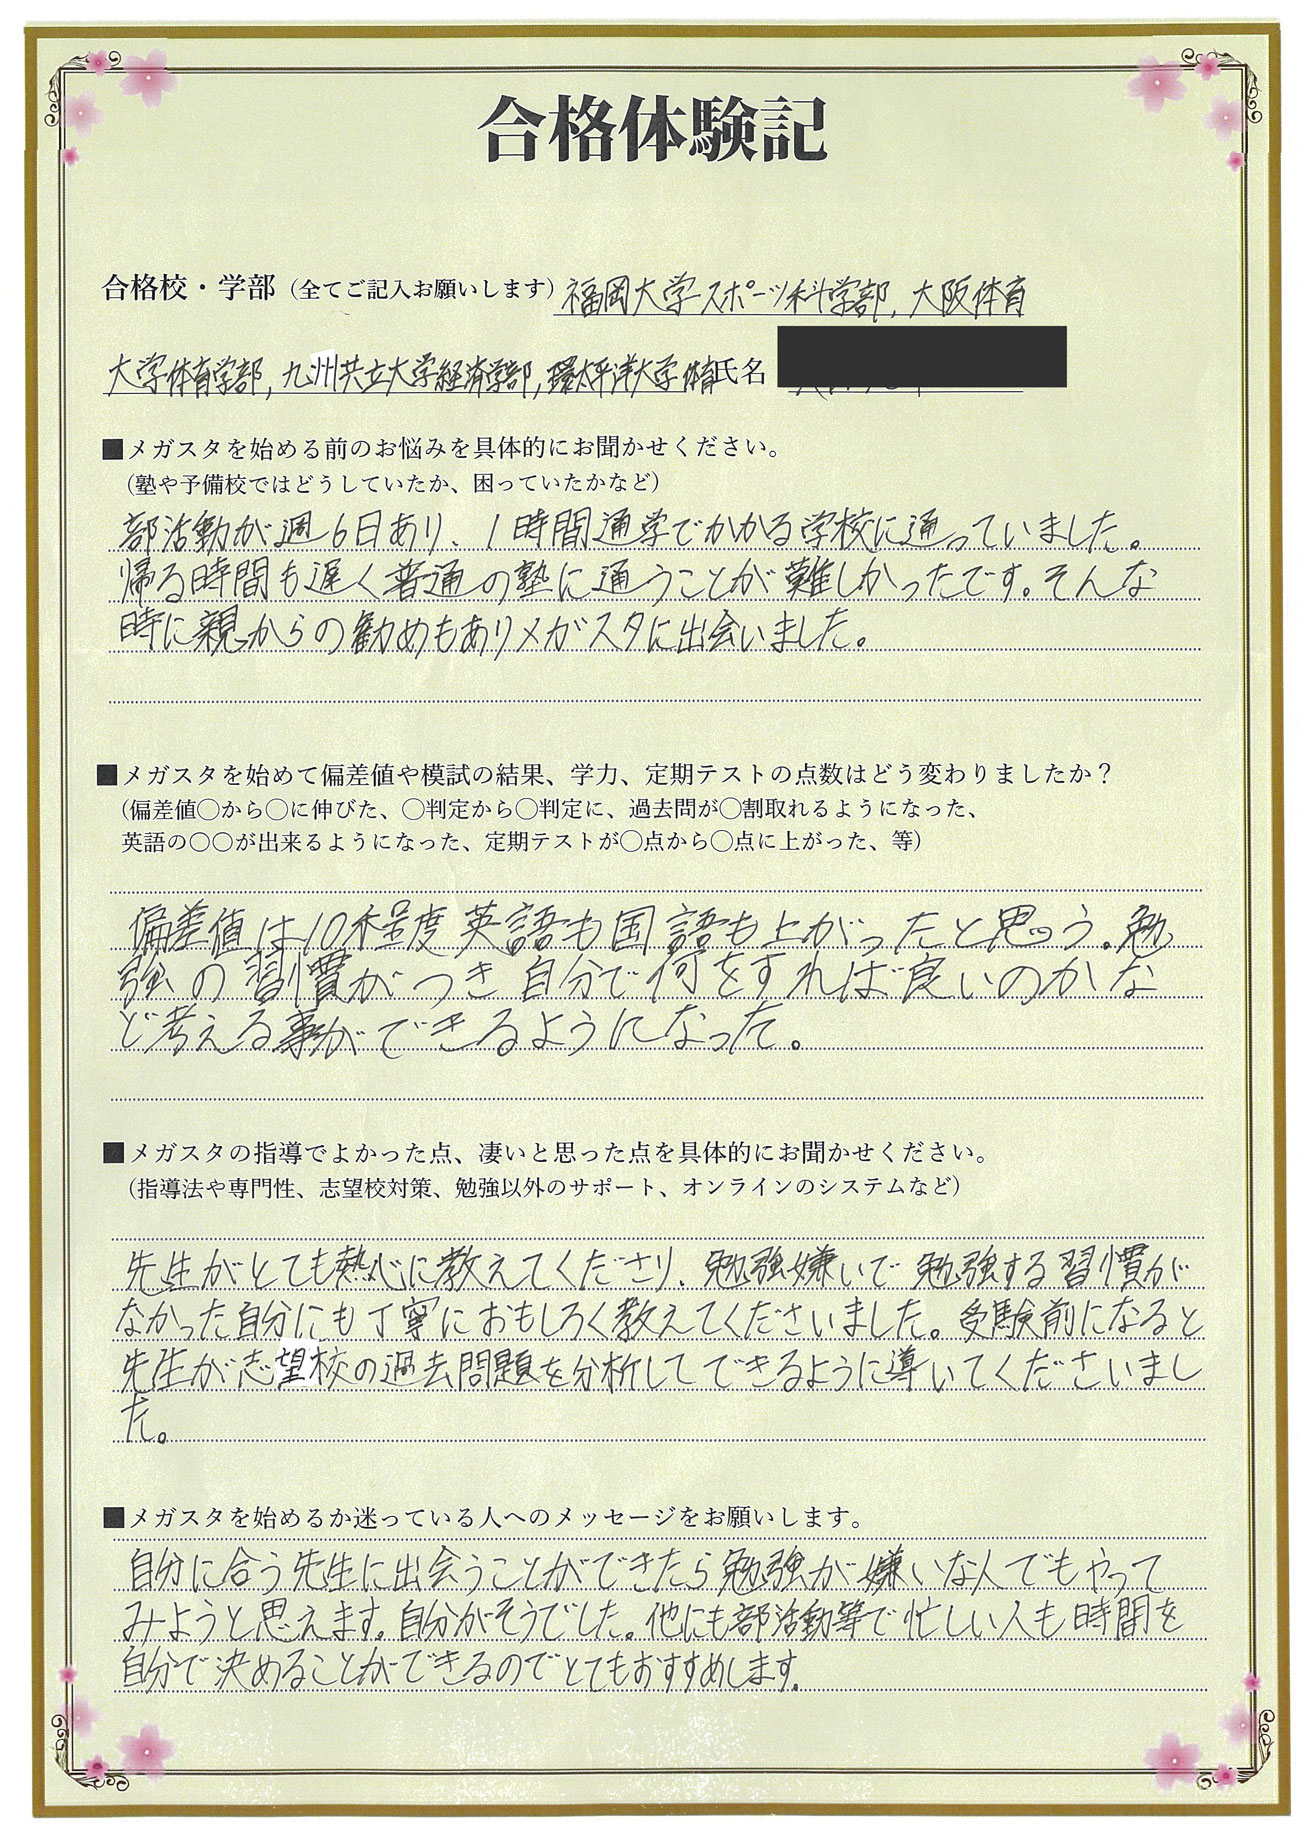 合格体験記
合格校・学部（全てご記入お願いします）福岡大学スポーツ科学部, 大阪体育
大学体育学部, 九州共立大学経済学部, 環太平洋大学体育氏名
■メガスタを始める前のお悩みを具体的にお聞かせください。
（塾や予備校ではどうしていたか、困っていたかなど）
部活動が週6日あり、1時間通学でかかる学校に通っていました。
帰る時間も遅く普通の塾に通うことが難しかったです。そんな
時に親からの勧めもありメガスタに出会いました。
■メガスタを始めて偏差値や模試の結果、学力、定期テストの点数はどう変わりましたか？
（偏差値〇から〇に伸びた、〇判定から〇判定に、過去問が〇割取れるようになった、
英語の〇〇が出来るようになった、定期テストが〇点から〇点に上がった、等）
偏差値は10程度英語も国語も上がったと思う。勉
強の習慣がつき自分で何をすれば良いのかな
ど考える事ができるようになった。
■メガスタの指導でよかった点、凄いと思った点を具体的にお聞かせください。
（指導法や専門性、志望校対策、勉強以外のサポート、オンラインのシステムなど）
先生がとても熱心に教えてくださり、勉強嫌いで勉強する習慣が
なかった自分にも丁寧におもしろく教えてくださいました。受験前になると
先生が志望校の過去問題を分析してできるように導いてくださいまし
た。
■メガスタを始めるか迷っている人へのメッセージをお願いします。
自分に合う先生に出会うことができたら勉強が嫌いな人でもやって
みようと思えます。自分がそうでした。他にも部活動等で忙しい人も時間を
自分で決めることができるのでとてもおすすめします。